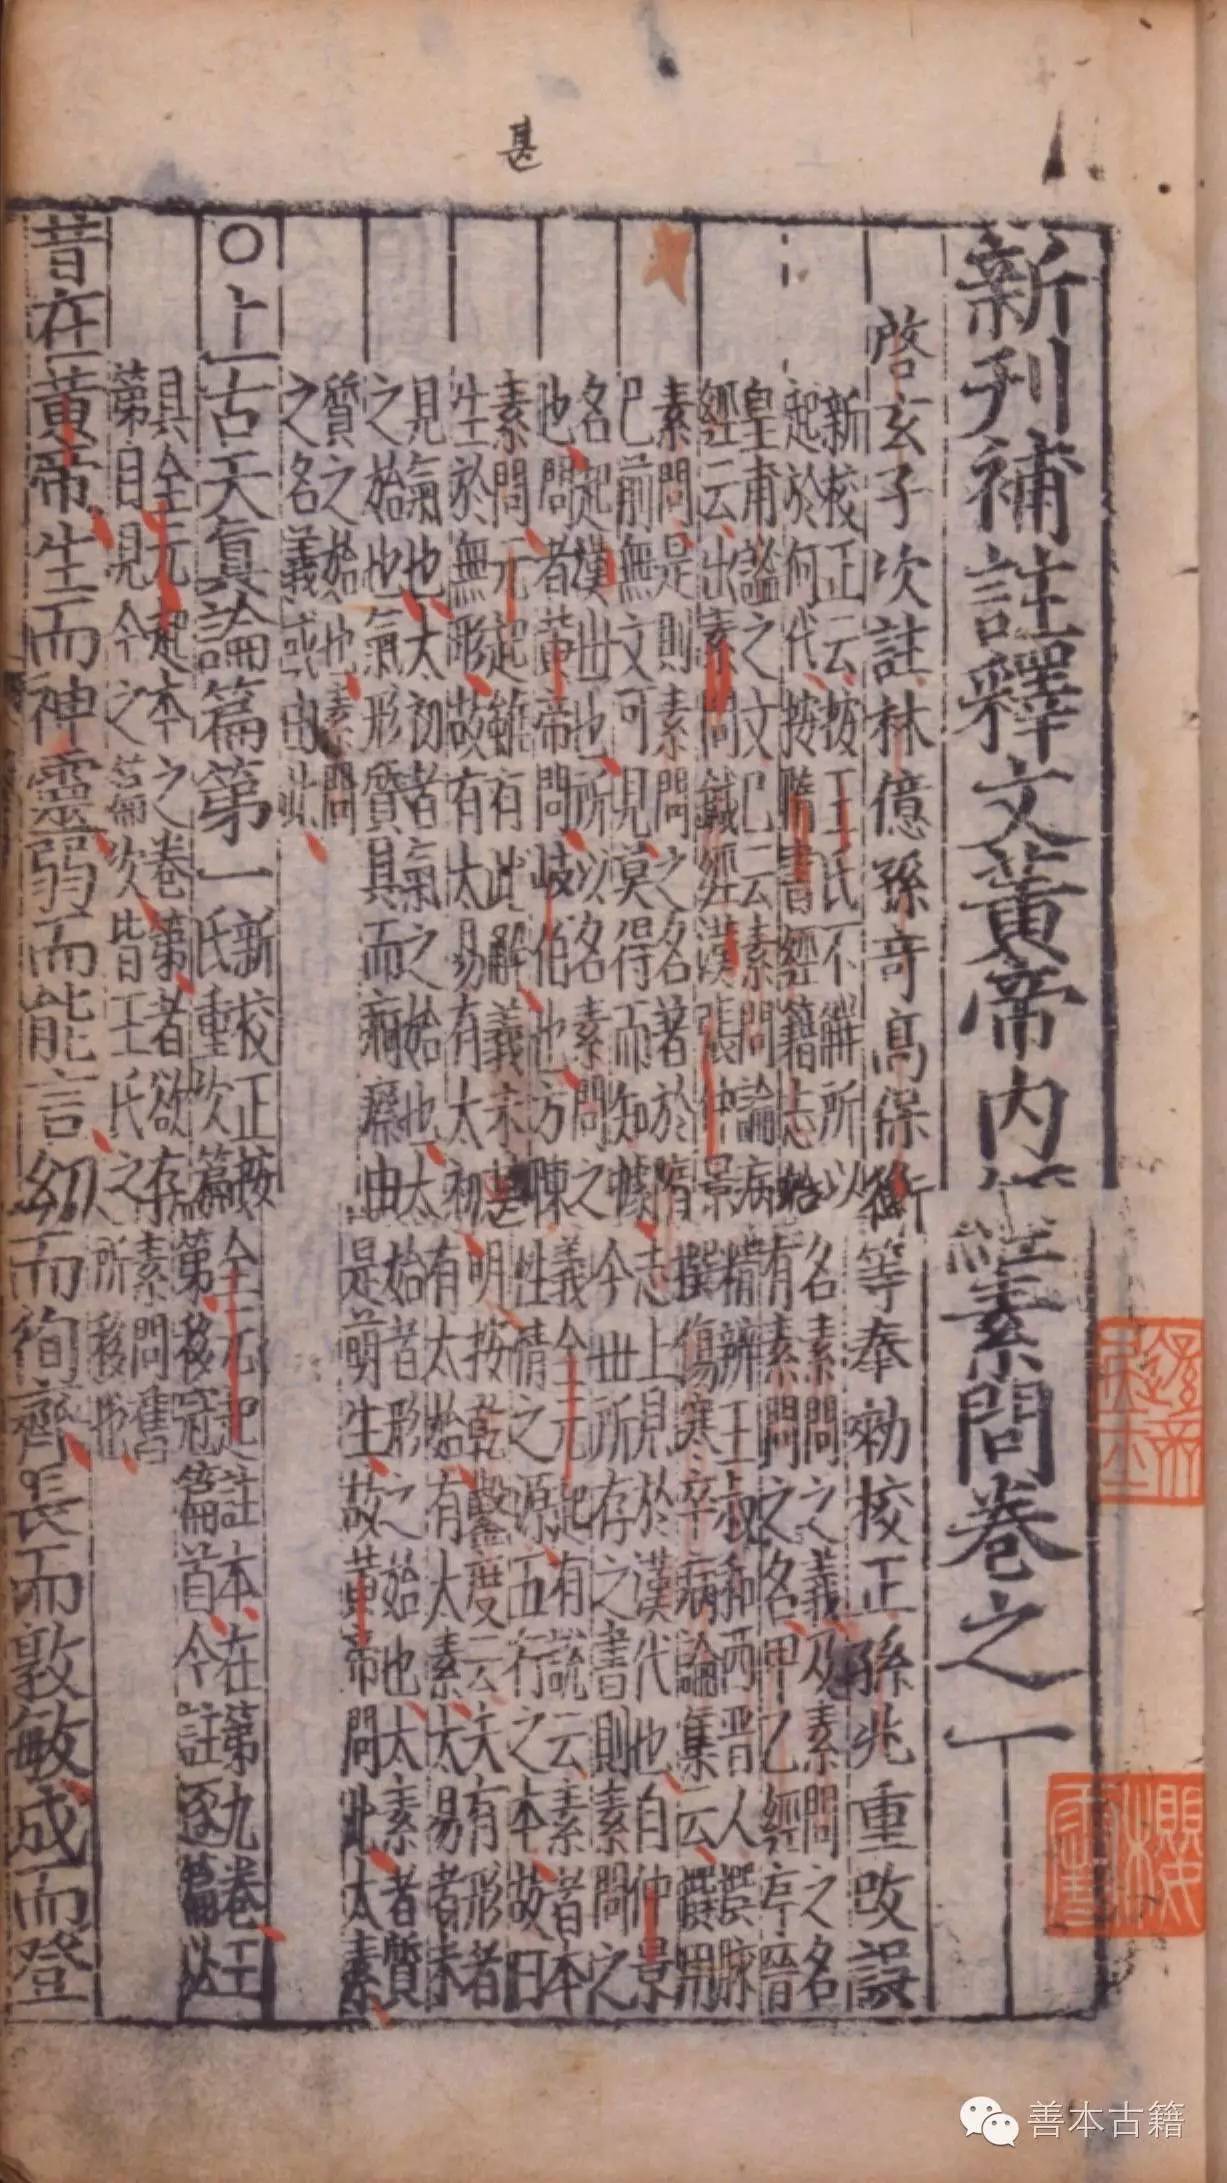 甚
新刋補註釋文黃帝內經素問卷之一
啓玄子次註林億孫奇高保衡等奉勑校正孫兆重改誤
新校正云按王氏不解所以名素問之義及素問之名
起於何代按隋書經籍志始有素問之名甲乙經序晉
皇甫謐之文已云素問論病精辨王叔和西晉人撰脉
經云出素問鍼經漢張仲景撰傷寒卒病論集云撰用
素問是則素問之名著於隋志上見於漢代也自仲景
已前無文可見莫得而知據今世所存之書則素問之
名起漢世也所以名素問之義全元起有說云素者本
也問者黃帝問岐伯也方陳性情之源五行之本故曰
素問元起雖有此解義未甚明按乾鑿度云夫有形者
生於無形故有太易有太初有太始有太素太易者未
見氣也太初者氣之始也太始者形之始也太素者質
之始也氣形質具而痾瘵由是萌生故黃帝問此太素
質之始也素問
之名義或由此
○上古天真論篇第一
新校正按全元起註本在第九卷王
氏重次篇第移冠篇首今註逐篇必
具全元起本之卷第者欲存素問舊
第目見今之篇次皆王氏之所移也
昔在黃帝生而神靈弱而能言幼而徇齊長而敦敏成而登
善本古籍